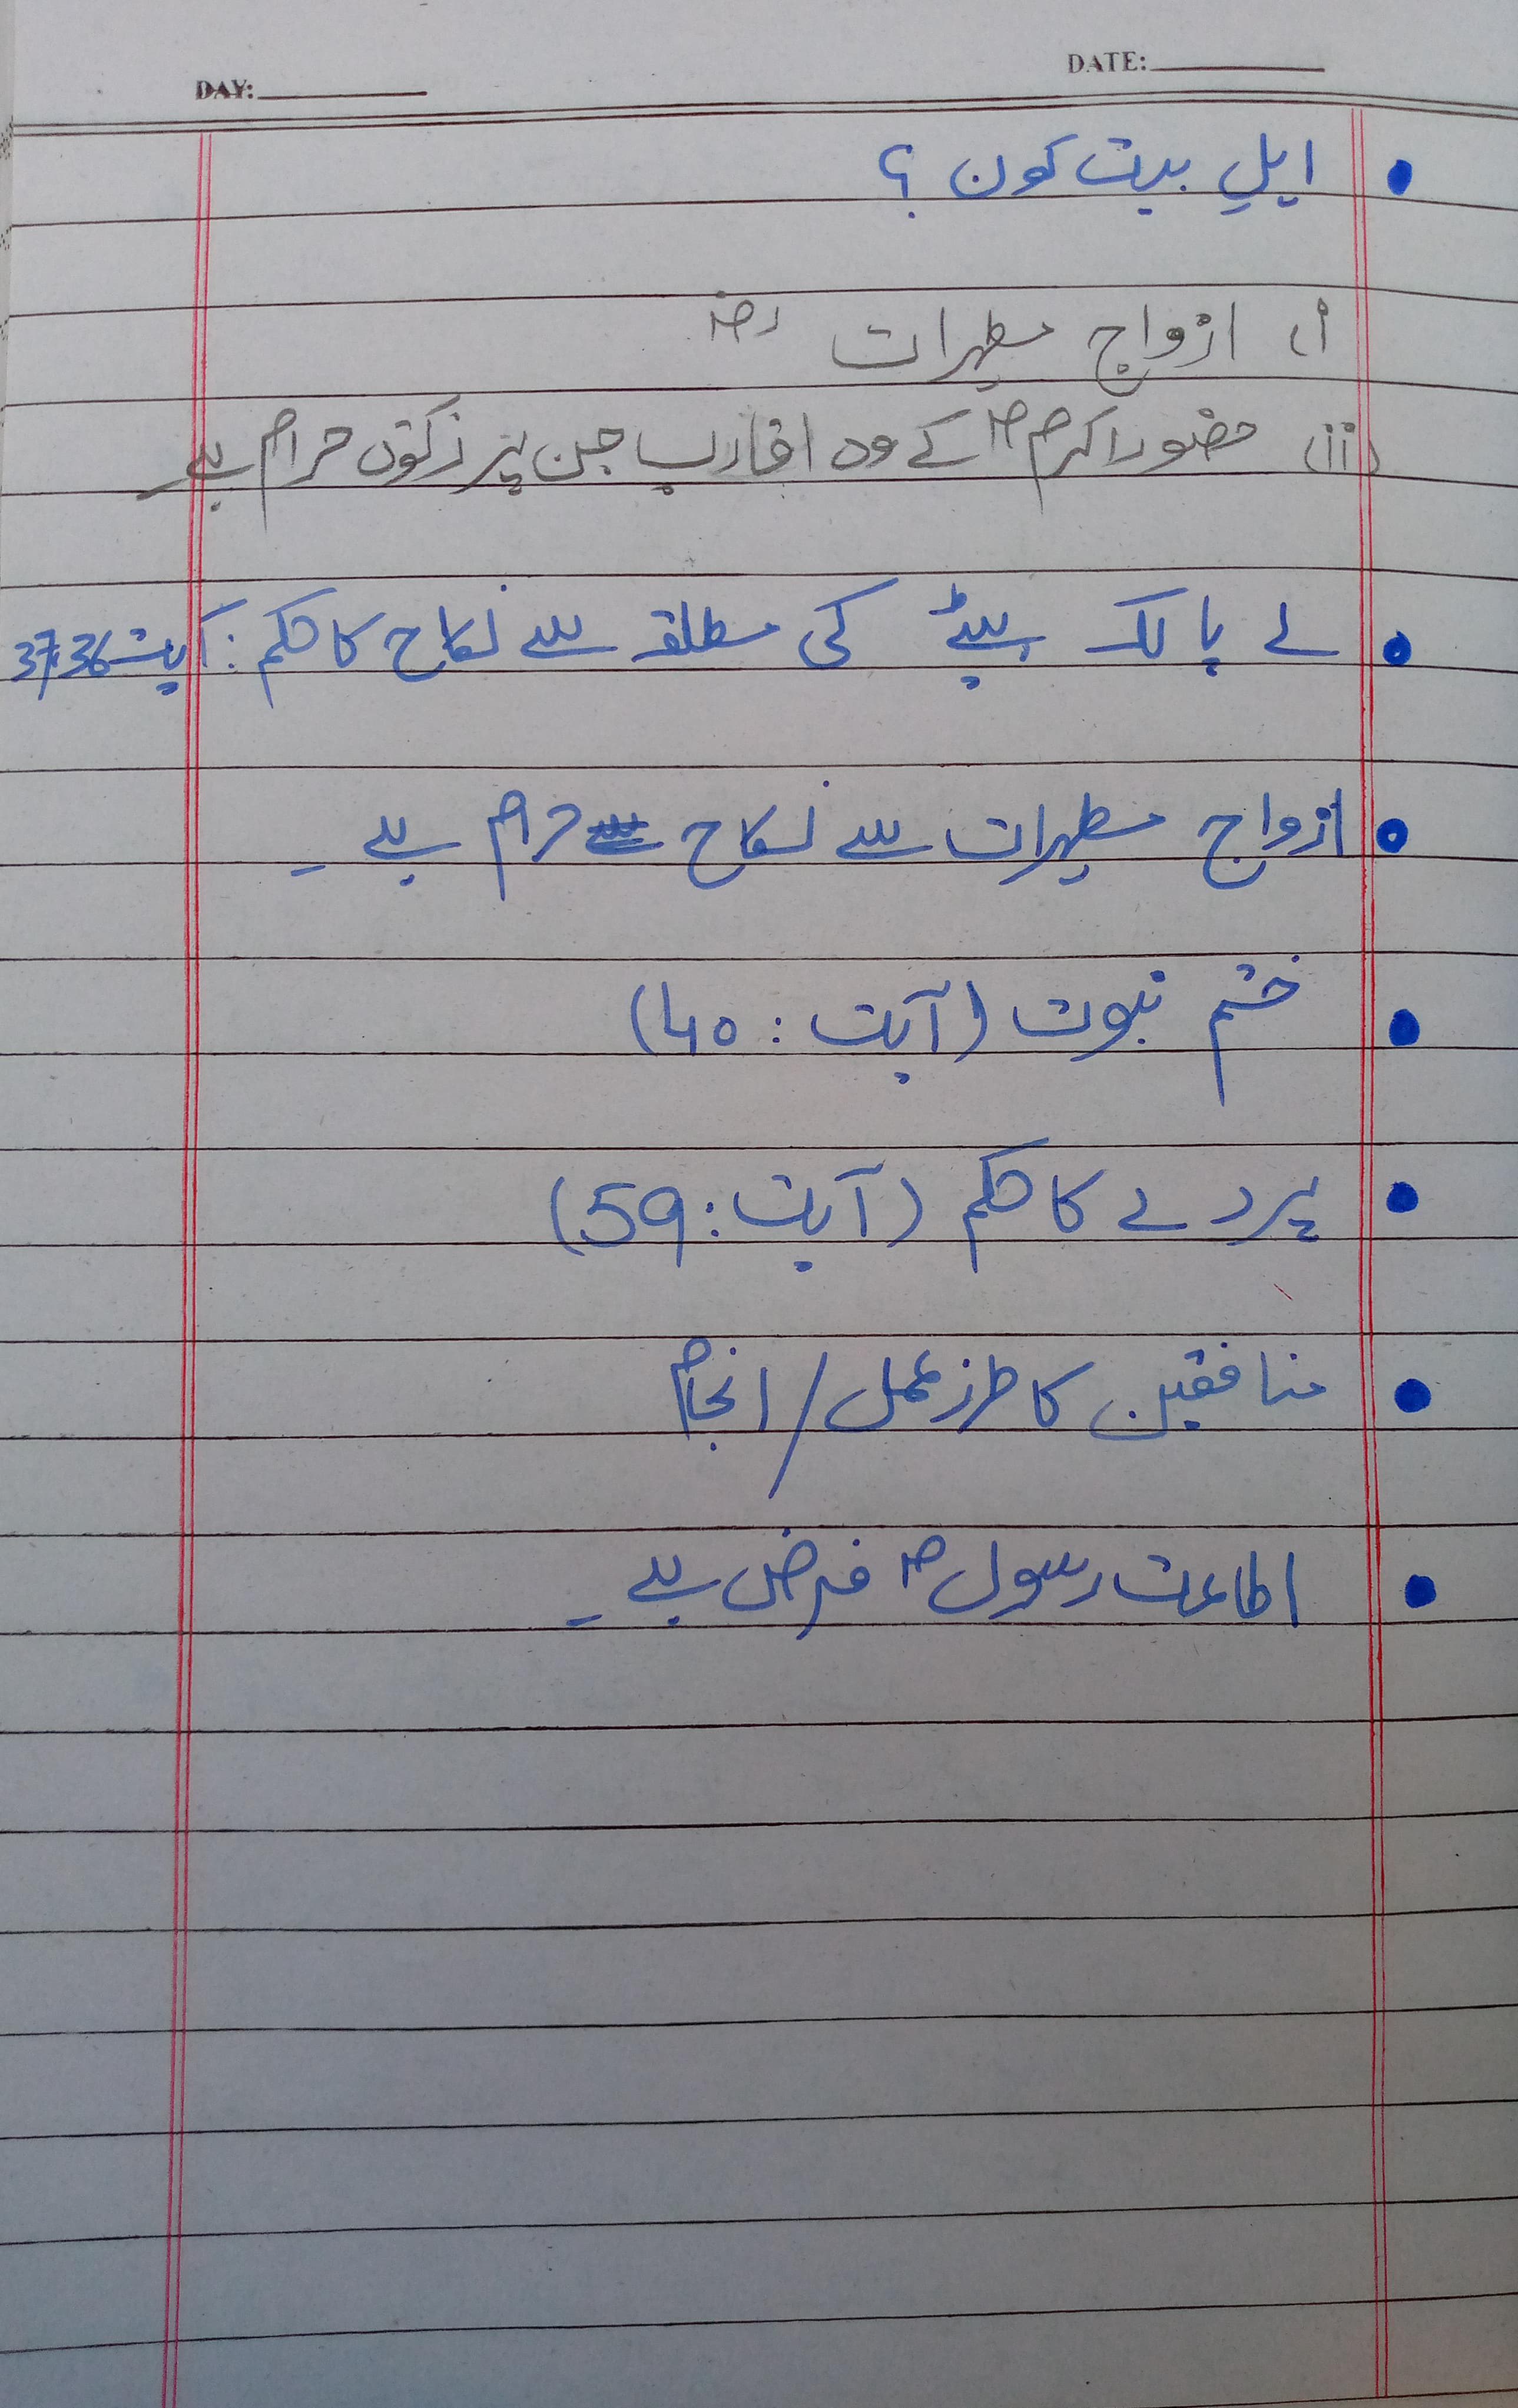 DAY: DATE:
• اہلِ بیت کون ؟
i) ازواج مطہرات رضہ
ii) حضور اکرم ﷺ کے وہ اقارب جن پر زکوٰۃ حرام ہے
• لے پالک بیٹے کی مطلقہ سے نکاح کا حکم : آیت 37،36
• ازواج مطہرات سے نکاح حرام ہے۔
• ختم نبوت (آیت : 40)
• پردے کا حکم (آیت : 59)
• منافقین کا طرز عمل / انجام
• اطاعت رسول ﷺ فرض ہے۔